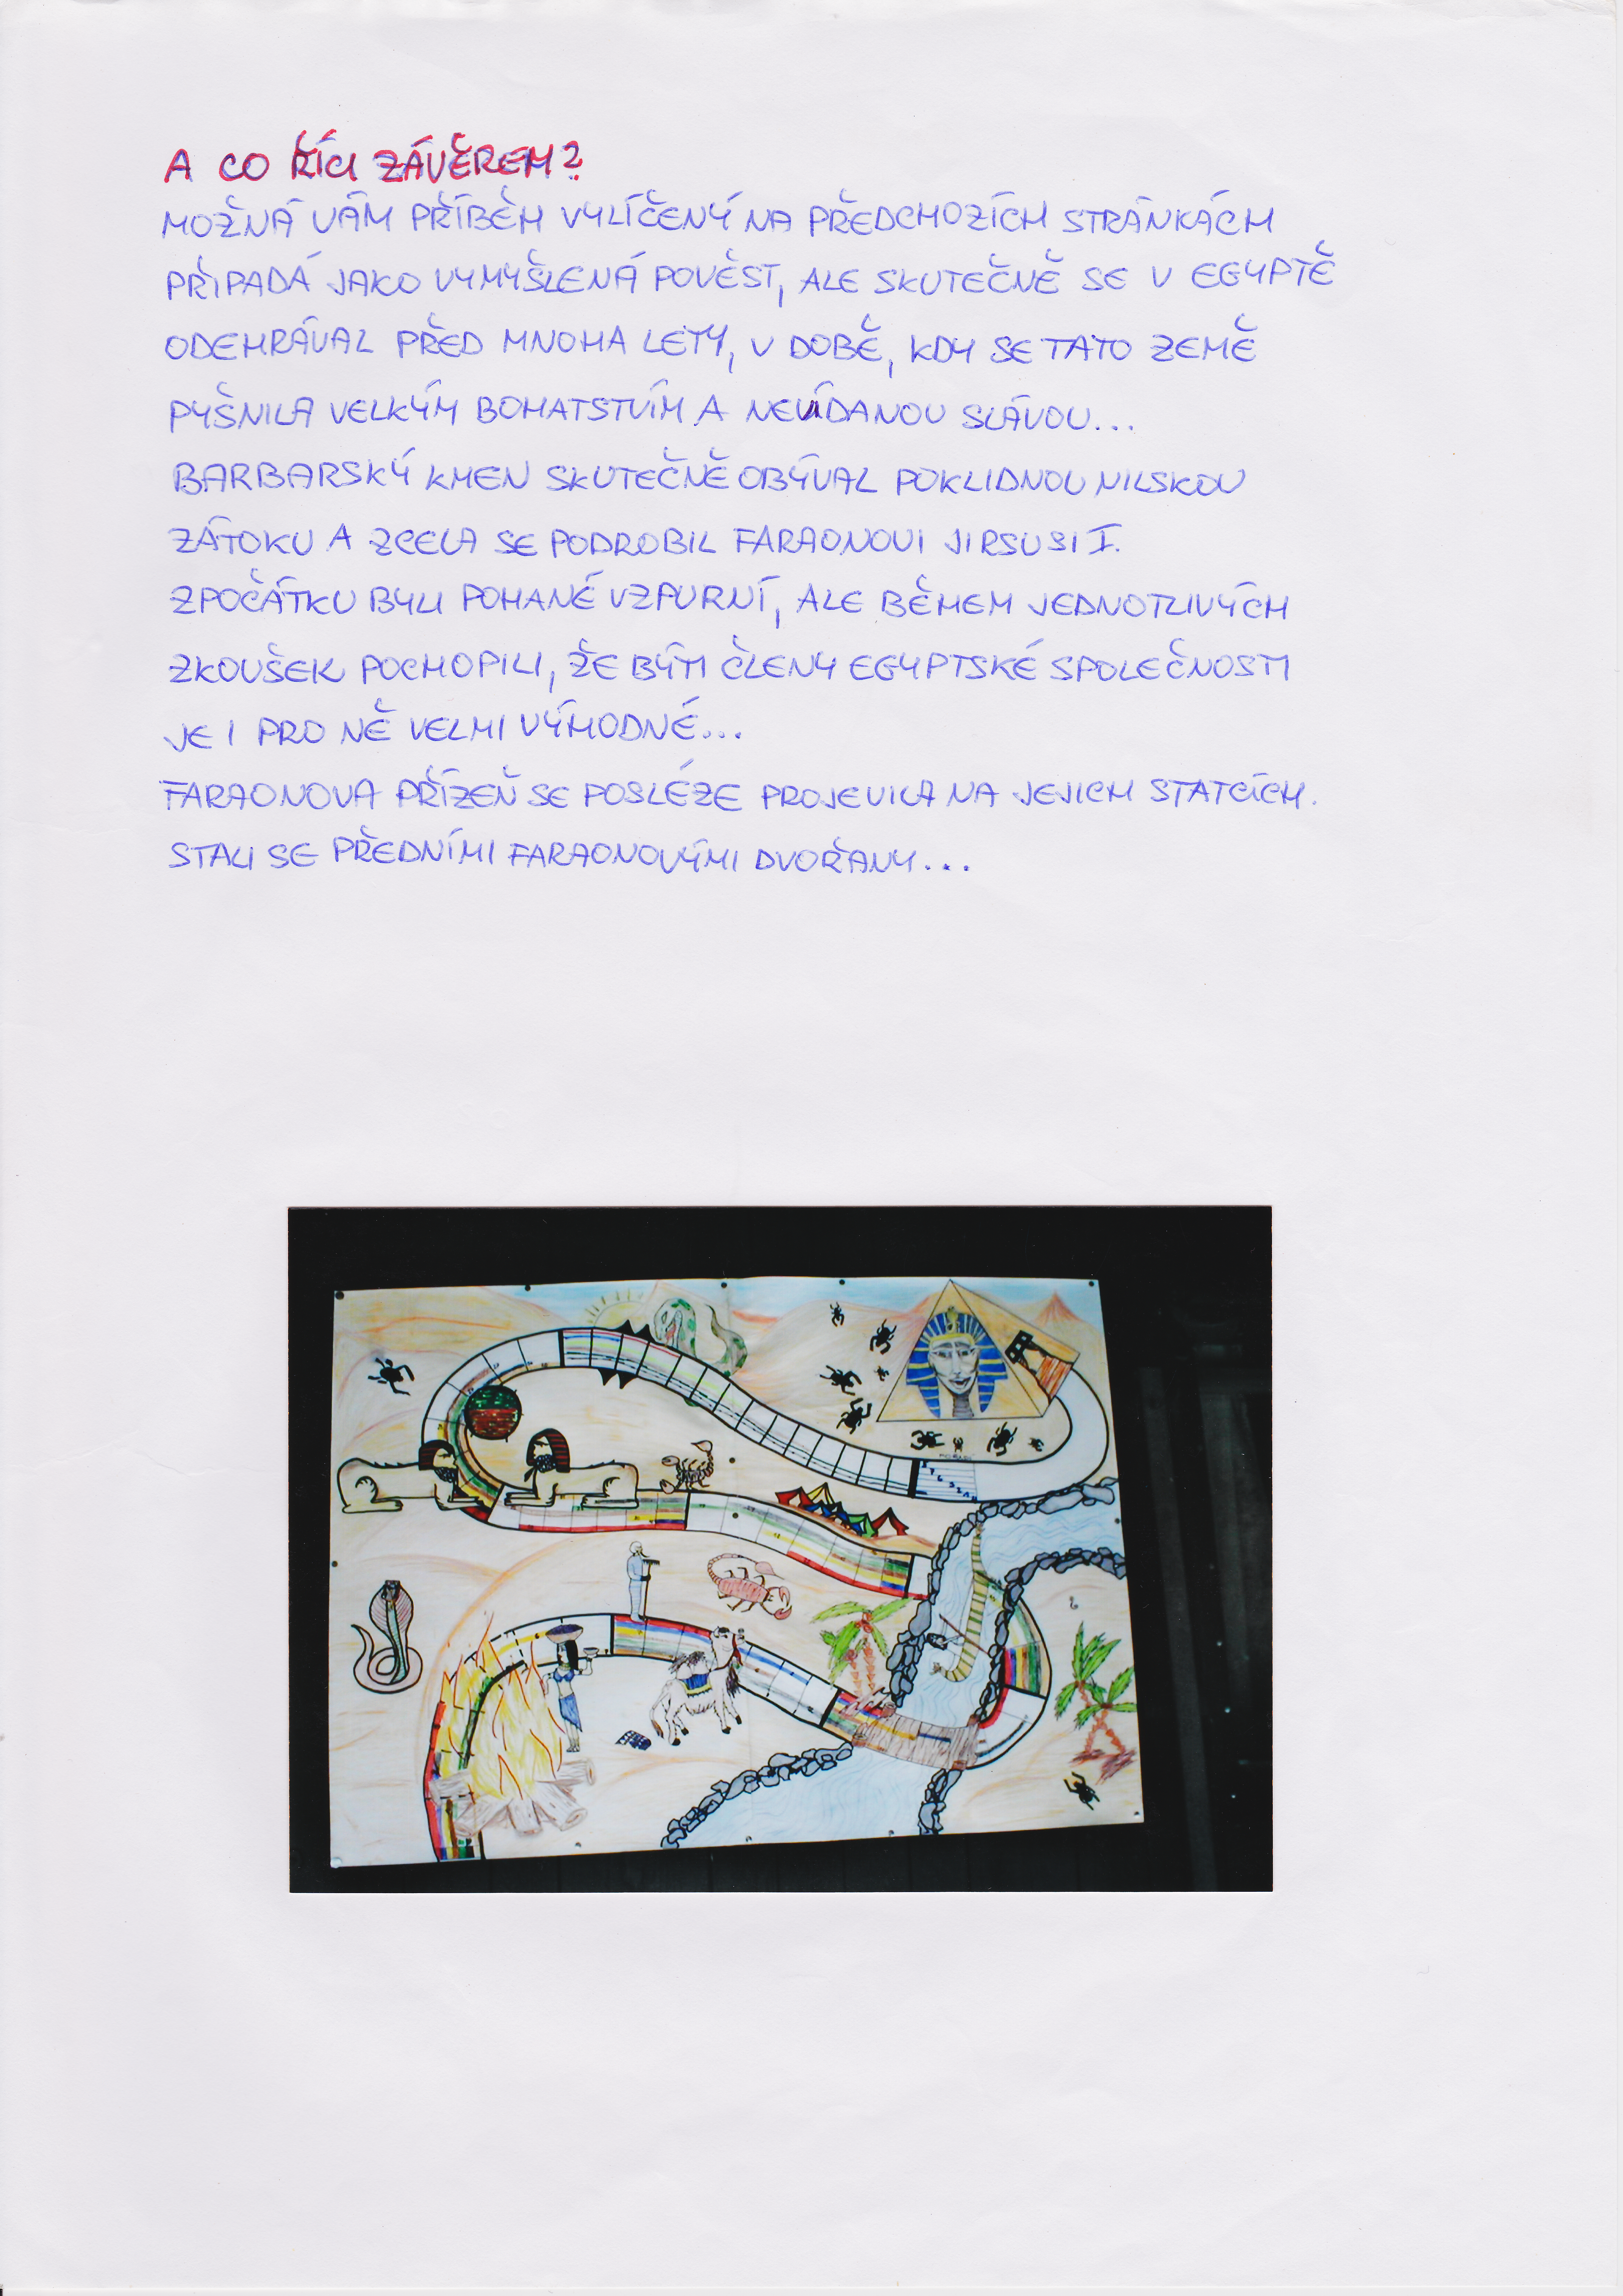 A CO ŘÍCI ZÁVĚREM?
MOŽNÁ VÁM PŘÍBĚH VYLÍČENÝ NA PŘEDCHOZÍCH STRÁNKÁCH
PŘIPADÁ JAKO VYMYŠLENÁ POVĚST, ALE SKUTEČNĚ SE V EGYPTĚ
ODEHRÁVAL PŘED MNOHA LETY, V DOBĚ, KDY SE TATO ZEMĚ
PYŠNILA VELKÝM BOHATSTVÍM A NEVÍDANOU SLÁVOU...
BARBARSKÝ KMEN SKUTEČNĚ OBÝVAL POKLIDNOU NILSKOU
ZÁTOKU A ZCELA SE PODROBIL FARAONOVI JIRSUSI I.
ZPOČÁTKU BYLI POHANÉ VZPURNÍ, ALE BĚHEM JEDNOTLIVÝCH
ZKOUŠEK POCHOPILI, ŽE BÝTI ČLENY EGYPTSKÉ SPOLEČNOSTI
JE I PRO NĚ VELMI VÝHODNÉ...
FARAONOVA PŘÍZEŇ SE POSLÉZE PROJEVILA NA JEJICH STATCÍCH.
STALI SE PŘEDNÍMI FARAONOVÝMI DVOŘANY...